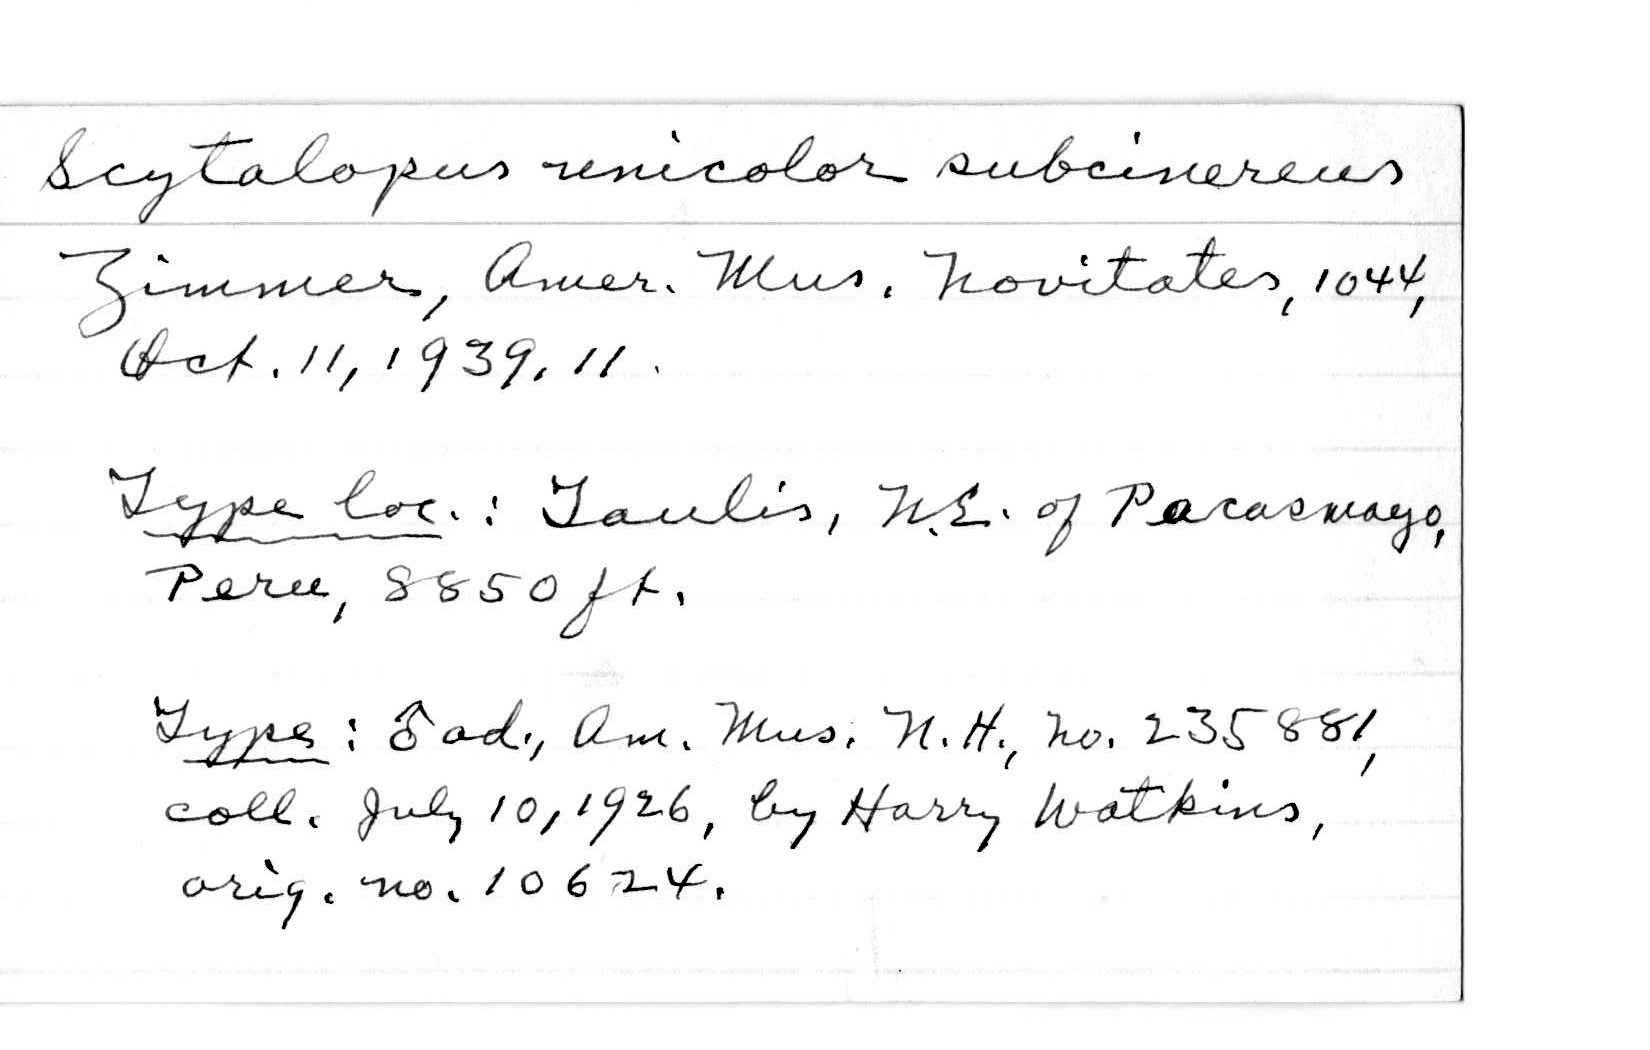 Scytalopus unicolor subcinereus
Zimmer, Amer. Mus. Novitates, 1044,
Oct. 11, 1939, 11.
Type loc.: Taulis, N.E. of Pacasmayo,
Peru, 8850 ft.
Type: ♂ ad., Am. Mus. N.H., no. 235881,
coll. July 10, 1926, by Harry Watkins,
orig. no. 10624.